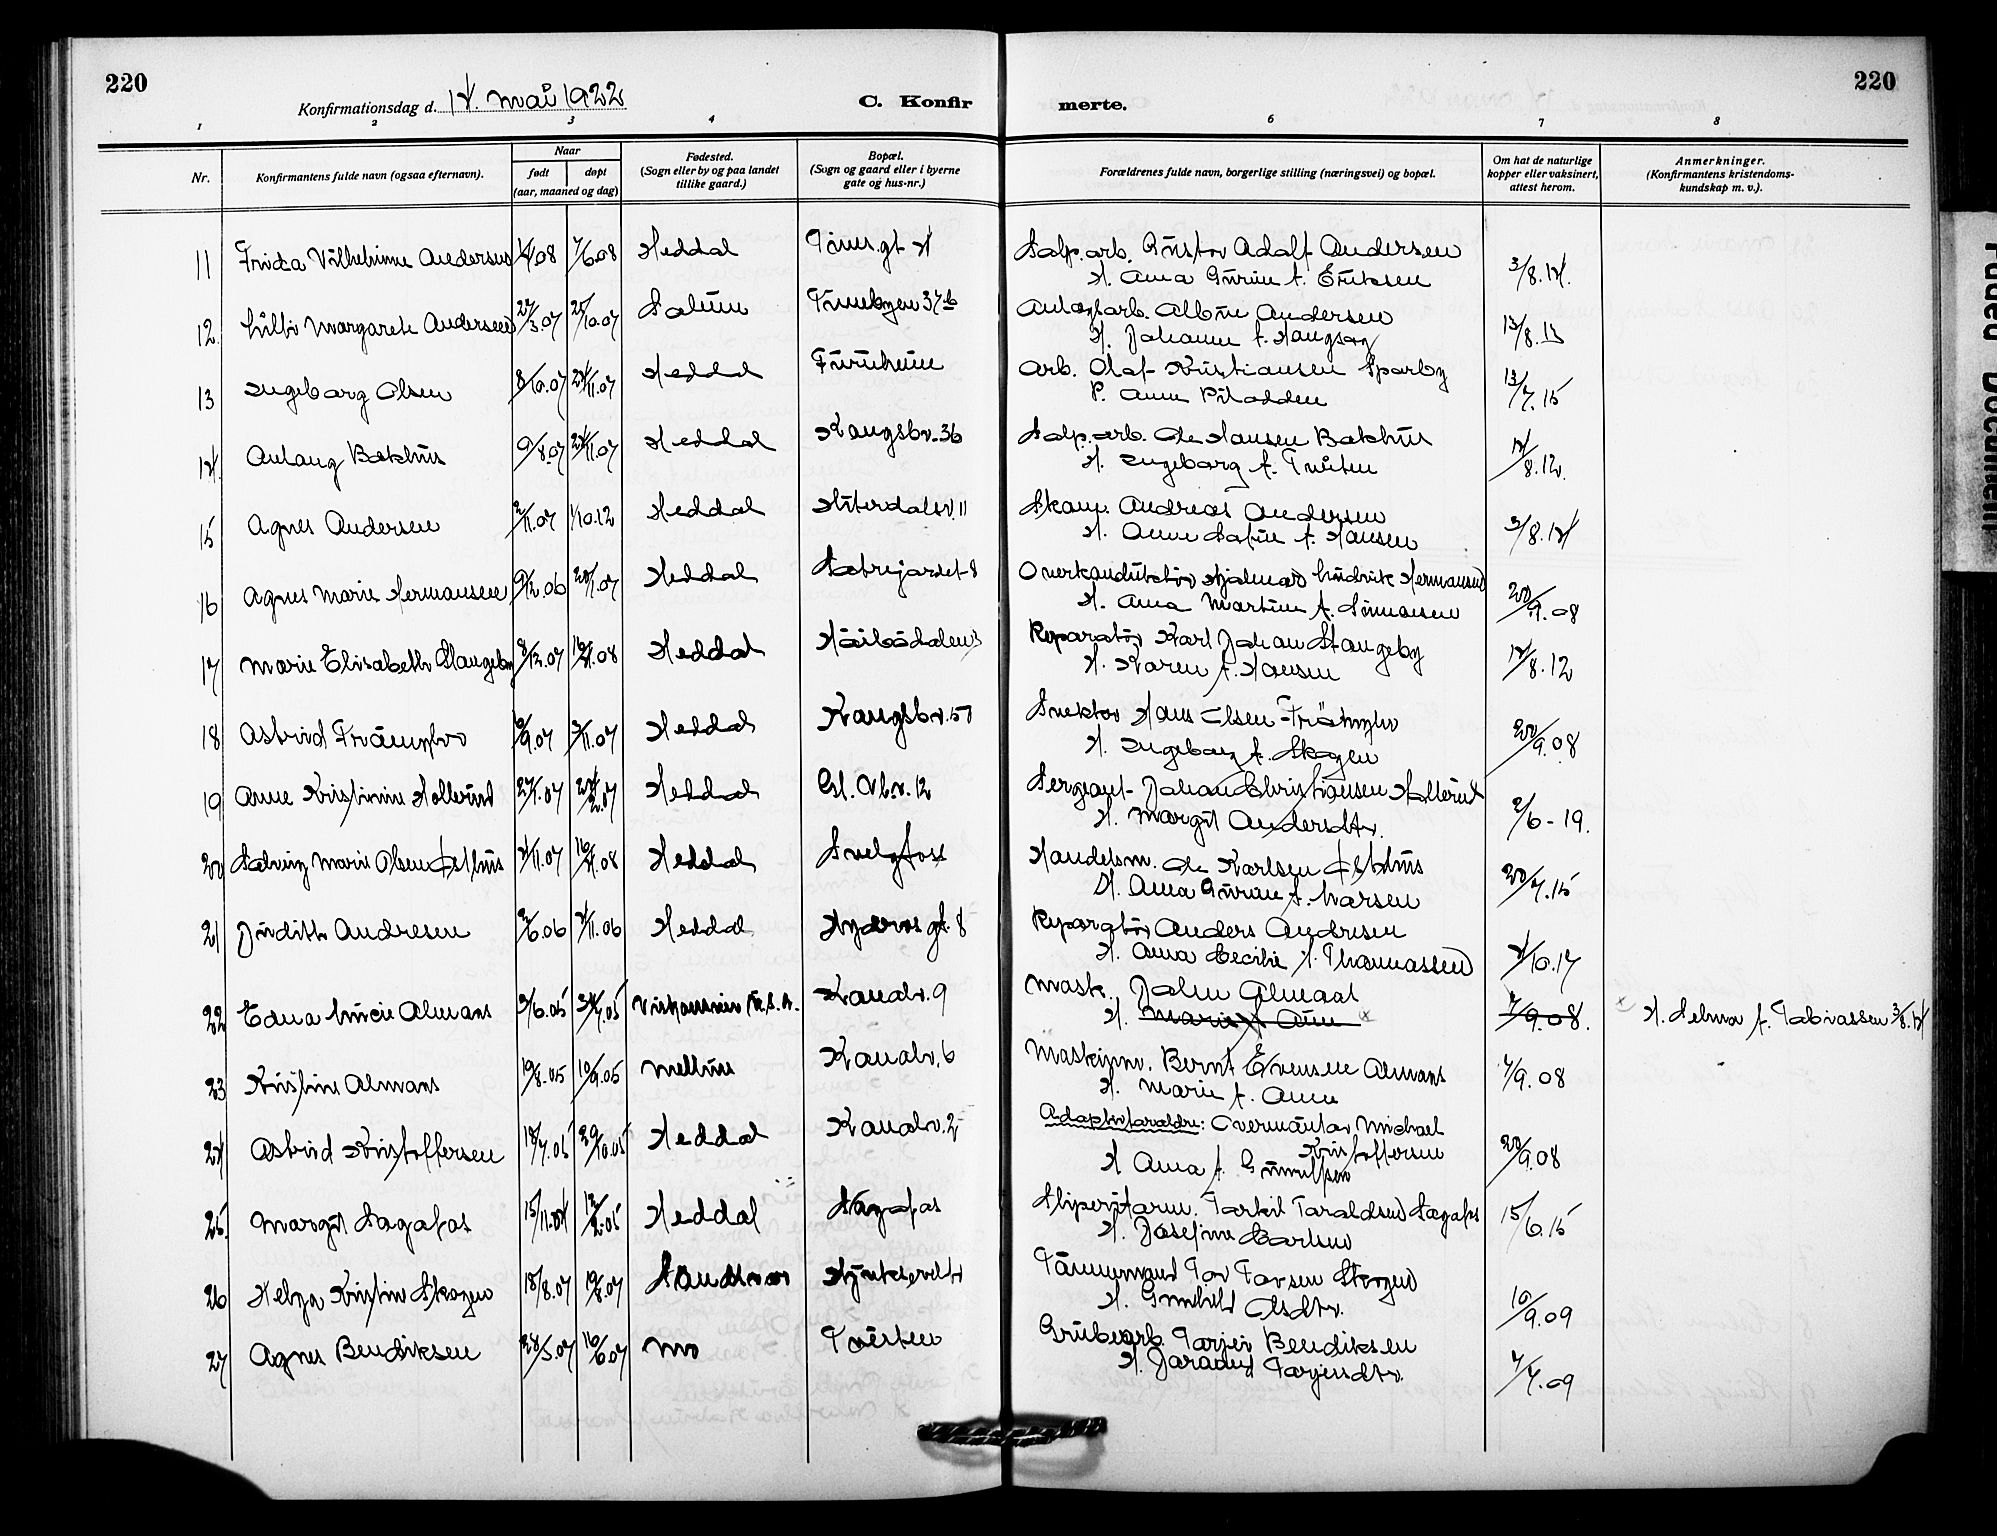 220
220
Konfirmationsdag d. 14. mai 1922
C. Konfir merte.
1 2 3 4 6 7 8
Nr.
Konfirmantens fulde navn (ogsaa efternavn).
Naar
født døpt
(aar, maaned og dag)
Fødested.
(Sogn eller by og paa landet
tillike gaard.)
Bopæl.
(Sogn og gaard eller i byerne
gate og hus-nr.)
Forældrenes fulde navn, borgerlige stilling (næringsvei) og bopæl.
Om hat de naturlige
kopper eller vaksinert,
attest herom.
Anmerkninger.
(Konfirmantens kristendoms-
kundskap m. v.).
11 Frida Vilhelmine Andersen 08 7/6.08 Heddal Salp.arb. Gustav Adolf Andersen
H. Anna Gurine f. Eriksen 3/8.14.
12. Margarete Andersen 27/3.07 25/10.07 Solum Tinnebyen 37b Anlægsarb. Albin Andersen
H. Johanne f. Haugsag 13/8.13
13 Ingeborg Olsen 8/10.07 24/11.07 Heddal Furuheim Arb. Olaf Kristiansen Sparby
P. Anne 13/7.15
14. Aslaug Bakhus 9/8.07 24/11.07 Heddal Kongsbv. 36 Salp.arb. Ole Hansen Bakhus
H. Ingeborg f. 14/8.12.
15 Agnes Andersen 2/11.07 1/10.12 Heddal Hiterdalsv. 11 Skom. Andreas Andersen
H. Anne Sofie f. Hansen 3/8.14
16 Agnes Marie Hermansen 9/12.06 20/1.07 Heddal Sætrejordet 8 Overkonduktør Hjalmar Hermansen
H. Anna Martine f. Simonsen 20/9.08
17 Marie Elisabeth Stangeby 3/12.07 16/4.08 Heddal Reparatør Karl Johan Stangeby
H. Karen f. Hansen 14/8.12
18 Astrid 9.07 3/11.07 Heddal Kongsbv. 57 Hans Olsen
H. Ingeborg f. Skogen 20/9.08
19 Anne Kristine Hollerud 27/1.07 24/2.07 Heddal Gl. 12 Sergeant Johan Christiansen Hollerud
H. Margit Andersdtr. 2/6-19.
20 Solveig Marie Olsen Østhus 4/11.07 16/4.08 Heddal Svelgfoss Handelsm. Ole Karlsen Østhus
H. Anna Gurine f. Larsen 20/7.15
21 Judith Andresen 2/6.06 4/11.06 Heddal gt. 8 Reparatør Anders Andresen
H. Anna Cecilie f. Thomassen 4/10.17
22 Edna Lucie Almaas 3/6.05 05 Viskonsin U.S.A. Kanalv. 9 Mask. John Almaas
H. Marie f. Aune x 7/9.08. x H. Selma f. Tobiassen 3/8.14
23 Kristine Almaas 19/8.05 10/9.05 Melhus Kanalv. 6 Maskinm. Bernt Evensen Almaas
H. Marie f. Aune 7/9.08
24 Astrid Kristoffersen 18/7.05 29/10.05 Heddal Kanalv. 2 Adoptivforældre: Overmontør Michael
Kristoffersen
H Anna f. Gunulfsen 20/9.08
25. Margit Sagafos 15/11.04 12/2.05 Heddal Sagafos Sliperiform. Torkil Taraldsen Sagafos
H. Josefine Carlsen 15/6.15
26 Helga Kristine Skogen 18/8.07 07 Sandsvær Tømmermand Tov Torsen Skogen
H. Gunhild Olsdtr. 10/9.09
27 Agnes Bendiksen 28/3.07 16/6.07 Mo Grubearb. Tarjei Bendiksen
H. Jorand Torjeusdtr. 7/7.09